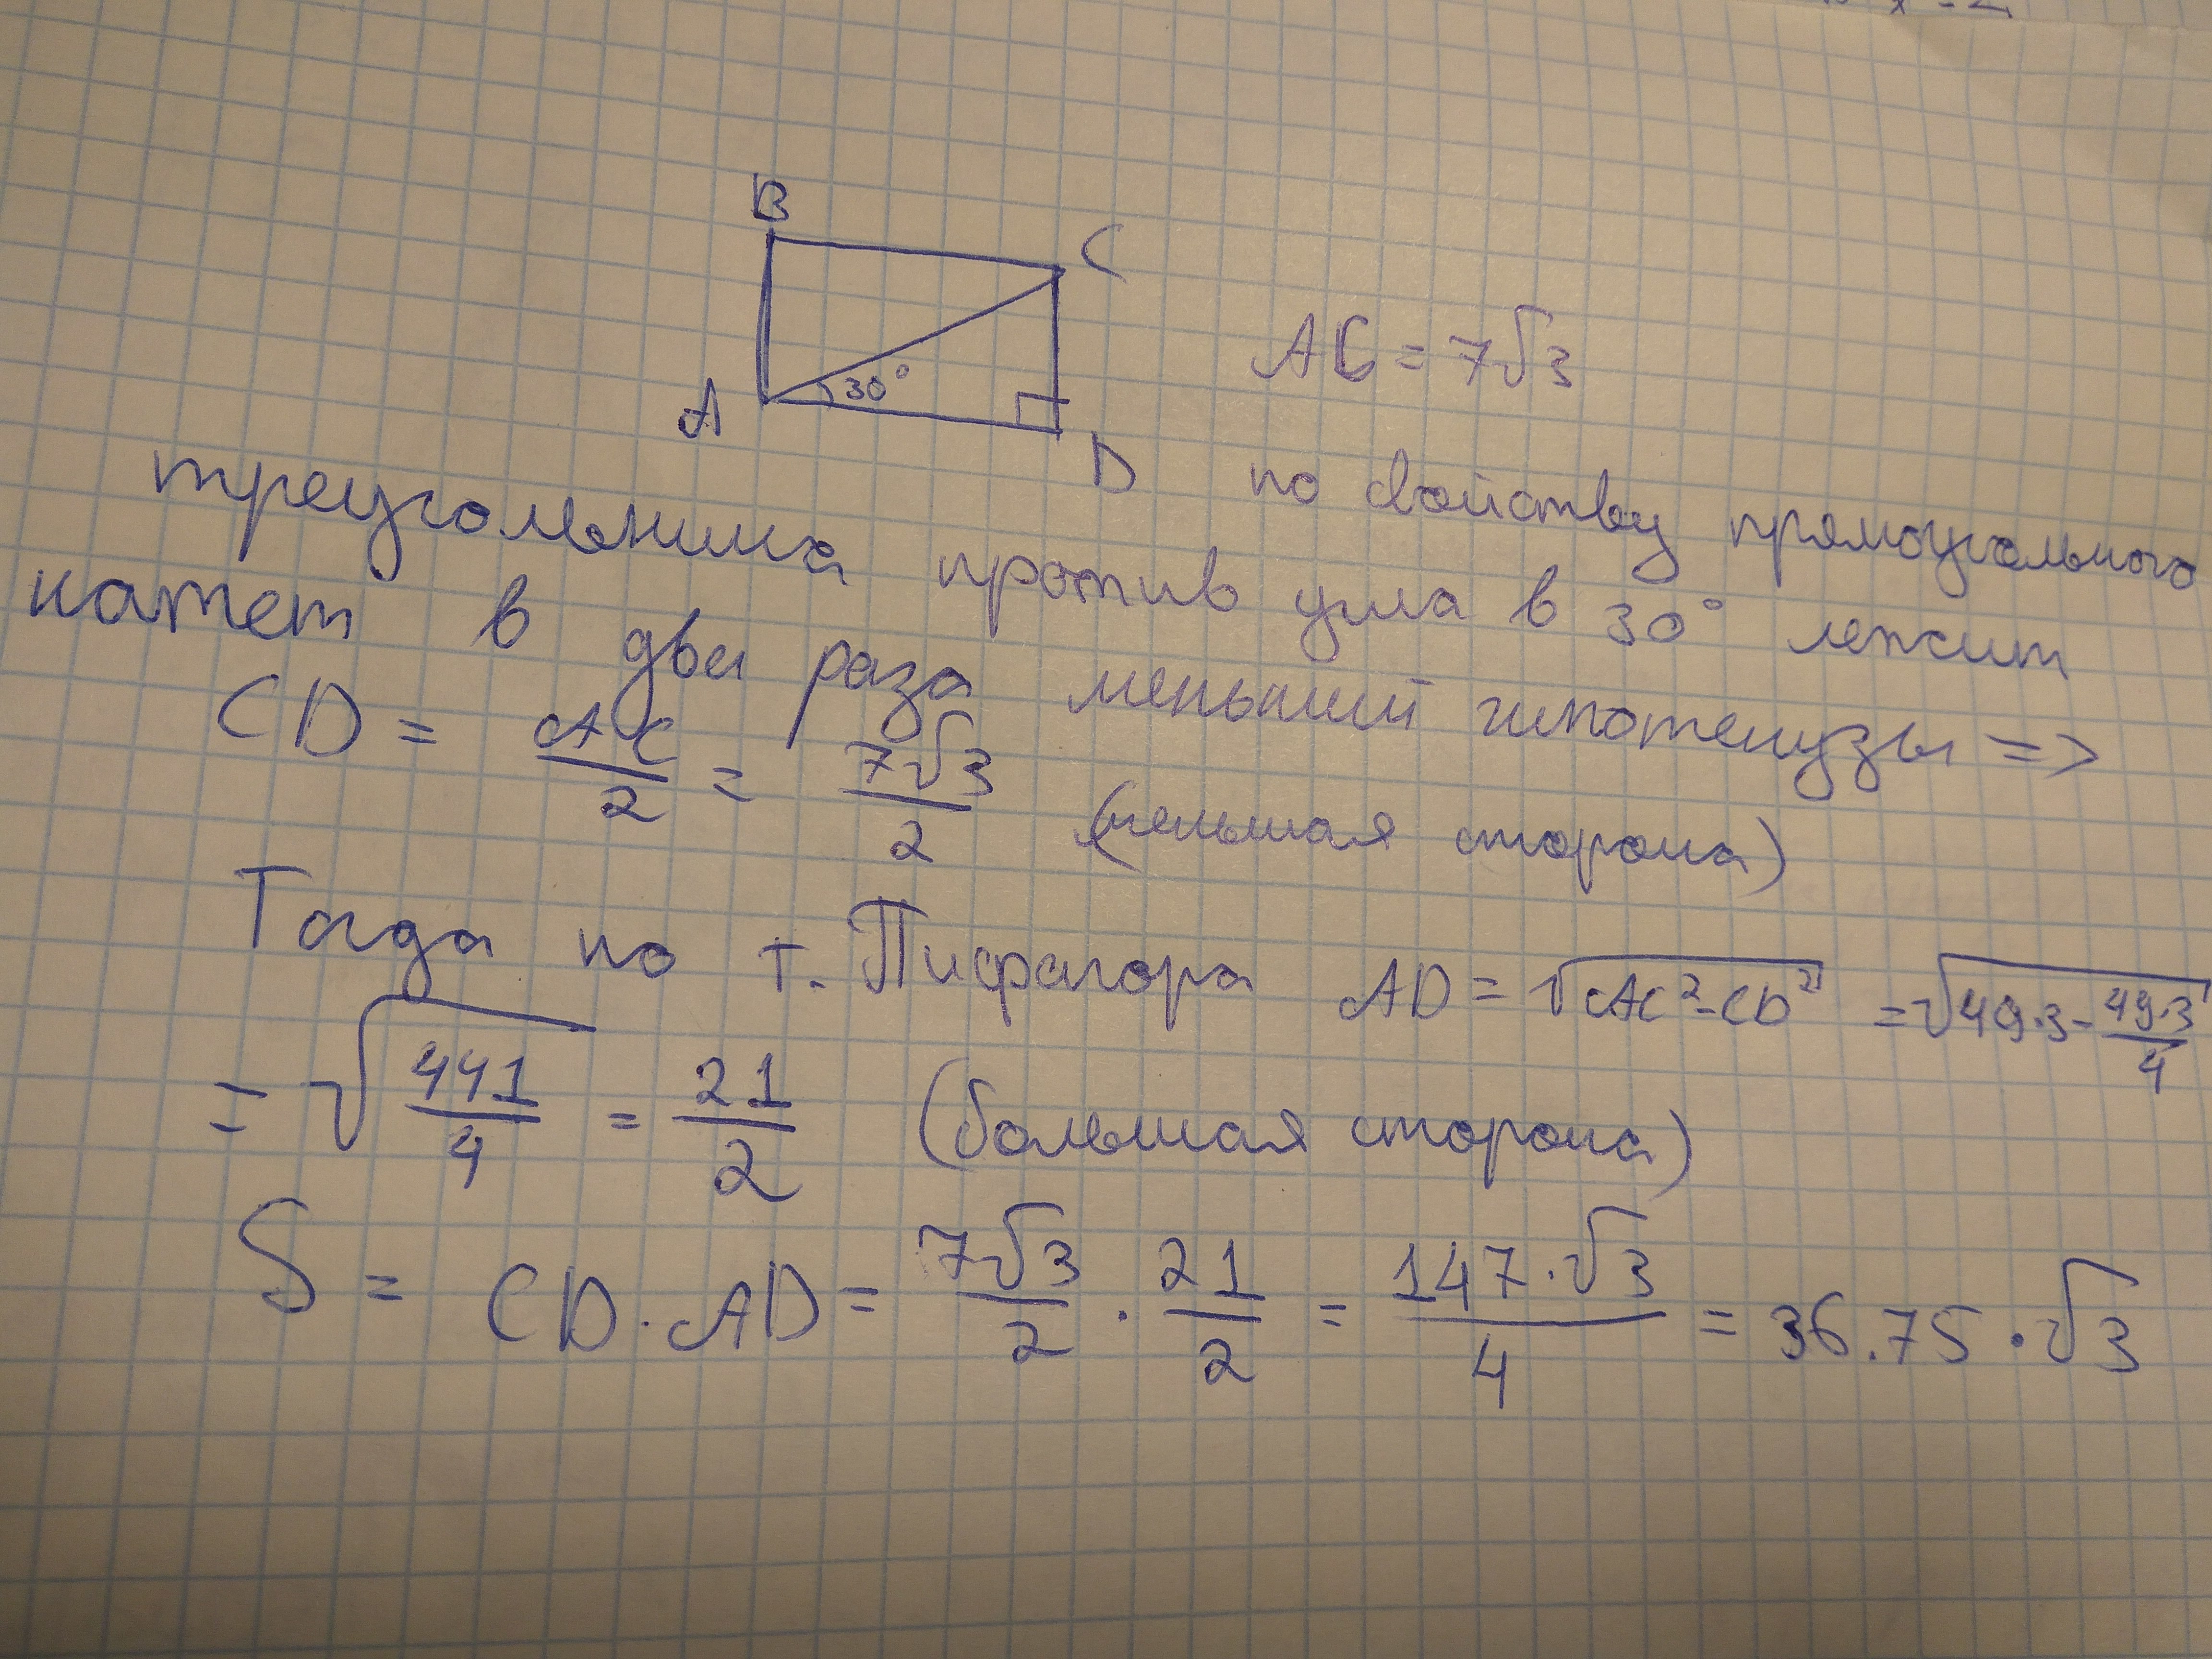 B
C
30°
A
D
AC = 7√3
по свойству прямоугольного
треугольника против угла в 30° лежит
катет в два раза меньший гипотенузы =>
CD = AC/2 = 7√3/2 (меньшая сторона)
Тогда по т. Пифагора AD = √(AC² - CD²) = √(49·3 - 49·3/4)
= √(441/4) = 21/2 (большая сторона)
S = CD · AD = 7√3/2 · 21/2 = 147·√3/4 = 36.75 · √3